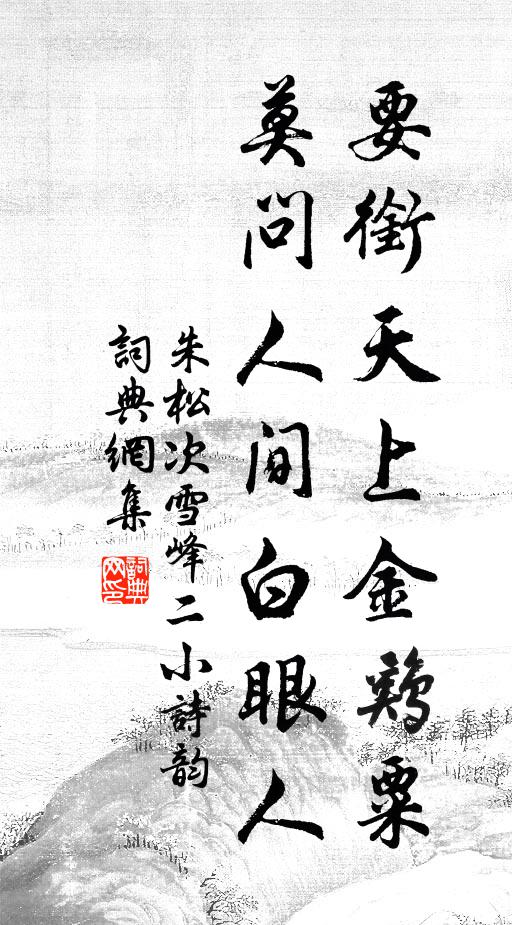 要銜天上金鷄粟
莫問人間白眼人
朱松次雪峰二小詩韵
詞典網集
詞典網印